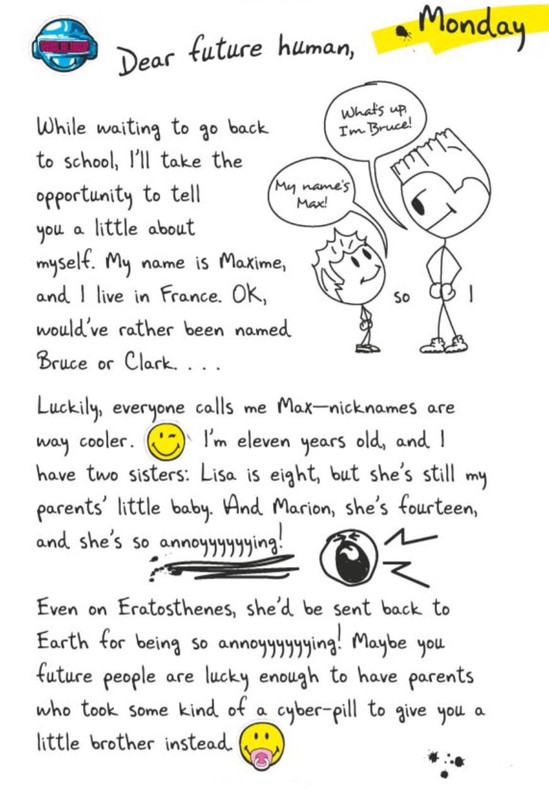 Monday
Dear future human,
What's up,
I'm Bruce!
My name's
Max!
While waiting to go back
to school, I'll take the
opportunity to tell
you a little about
myself. My name is Maxime,
and I live in France. OK, so I
would've rather been named
Bruce or Clark. . . .
Luckily, everyone calls me Max—nicknames are
way cooler. I'm eleven years old, and I
have two sisters: Lisa is eight, but she's still my
parents' little baby. And Marion, she's fourteen,
and she's so annoyyyyyying!
Even on Eratosthenes, she'd be sent back to
Earth for being so annoyyyyyying! Maybe you
future people are lucky enough to have parents
who took some kind of a cyber-pill to give you a
little brother instead.